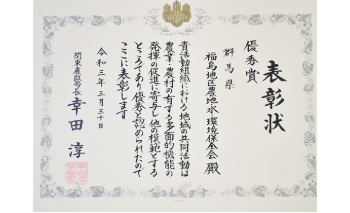 表彰状
優秀賞
群馬県
福島地区農地水・環境保全会 殿
貴活動組織における地域の共同活動は
農業・農村の有する多面的機能の
発揮の促進に寄与し他の模範とする
ところであり優秀と認められたので
ここに表彰します
令和三年三月三十日
関東農政局長 幸田 淳